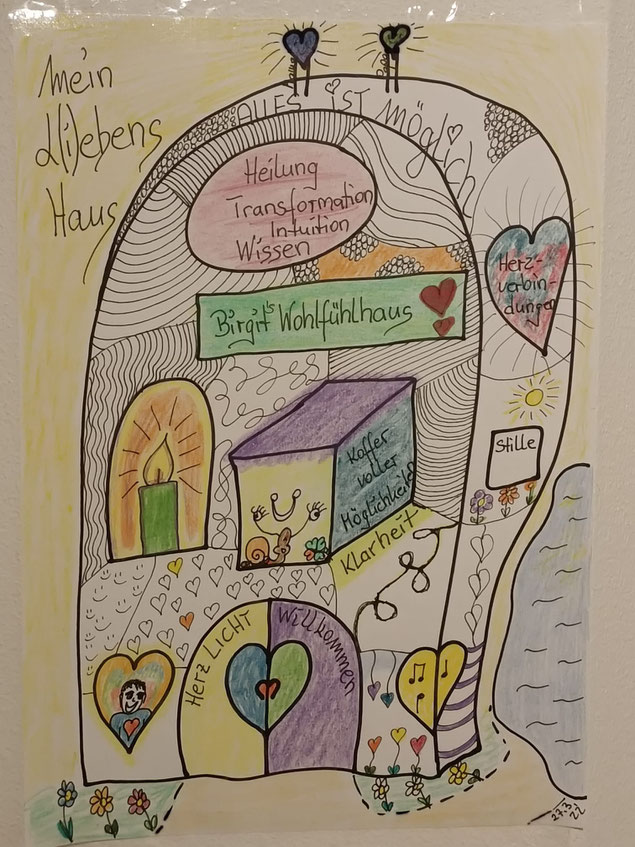 mein
d(i)ebens
Haus
ALLES ist möglich
Heilung
Transformation
Intuition
Wissen
Birgit's Wohlfühlhaus
Herz-
verbin-
dungen
Stille
Koffer
voller
Möglichkeit
Klarheit
Herz LICHT
Willkommen
27.3
22